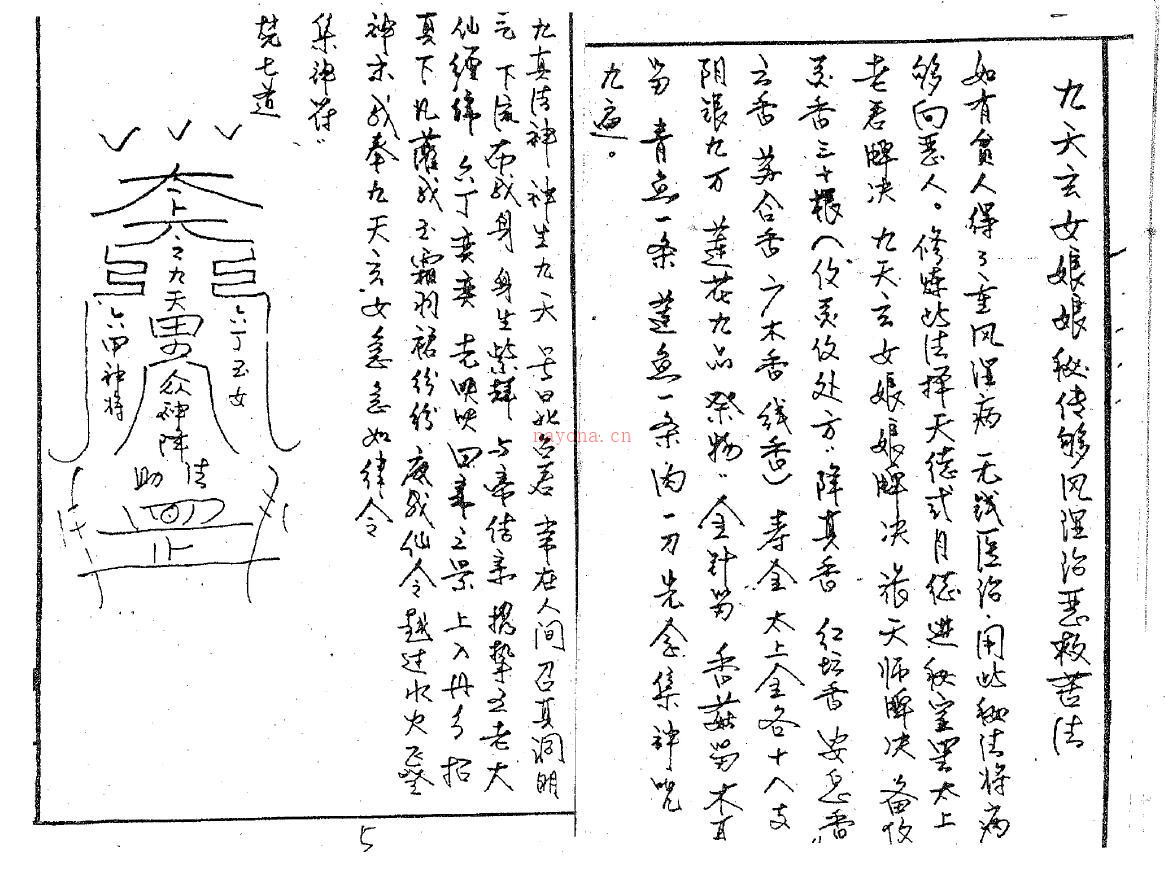 九天玄女娘娘秘传移风湿治恶救苦法
如有贫人得了重风湿病 无钱医治.用此秘法将病
移向恶人。修炼此法择天德或月德进秘室里太上
老君牌决 九天玄女娘娘牌决 张天师牌决 备伩
灵香三十根八伩灵伩处方"降真香 红坛香 安息香
云香 苏合香 广木香 线香) 寿金太上金各十八支
阴钱九万 莲花九品 祭物"金针笋 香菇笋 木耳
笋 青鱼一条 莲鱼一条 肉一刀 先念集神咒
九遍。
九真法神 神生九天 号曰北台君 常在人间 召真洞明
元 下流布我身 身生紫 与帝结亲 携挚五老大
仙缠绵 六丁奕奕 光映映 四之景 上入丹 招
真下凡 我玉霜羽裙纷纷 我仙令 越过水火
神示我奉九天玄女急急如律令
集神符"
焚七道
之九天
六丁玉女
六甲神将
众神阵
助法
nayona.cn
5